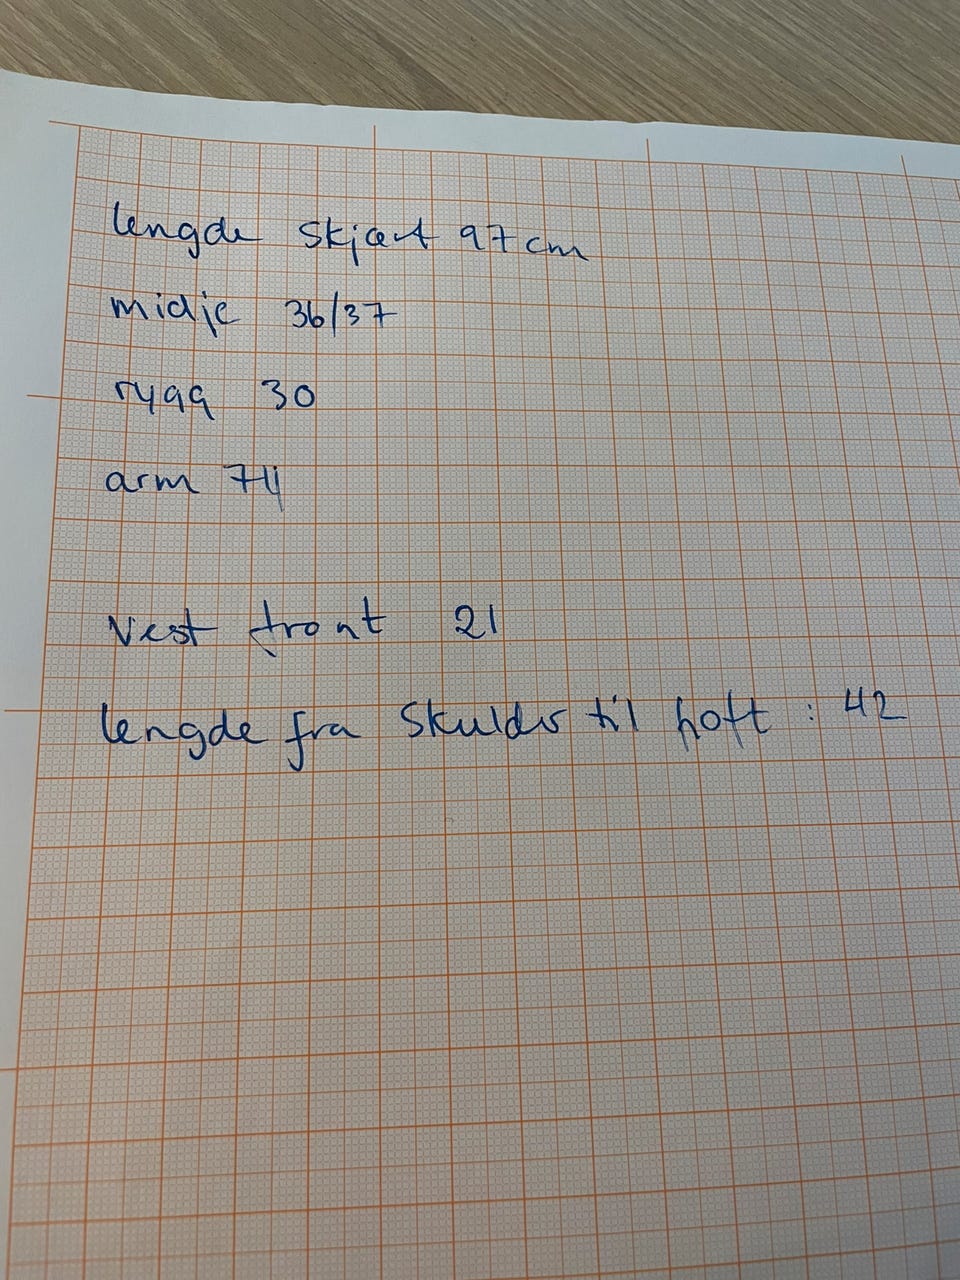 lengde skjørt 97cm
midje 36/37
rygg 30
arm 74
Vest front 21
lengde fra Skulder til hoft : 42